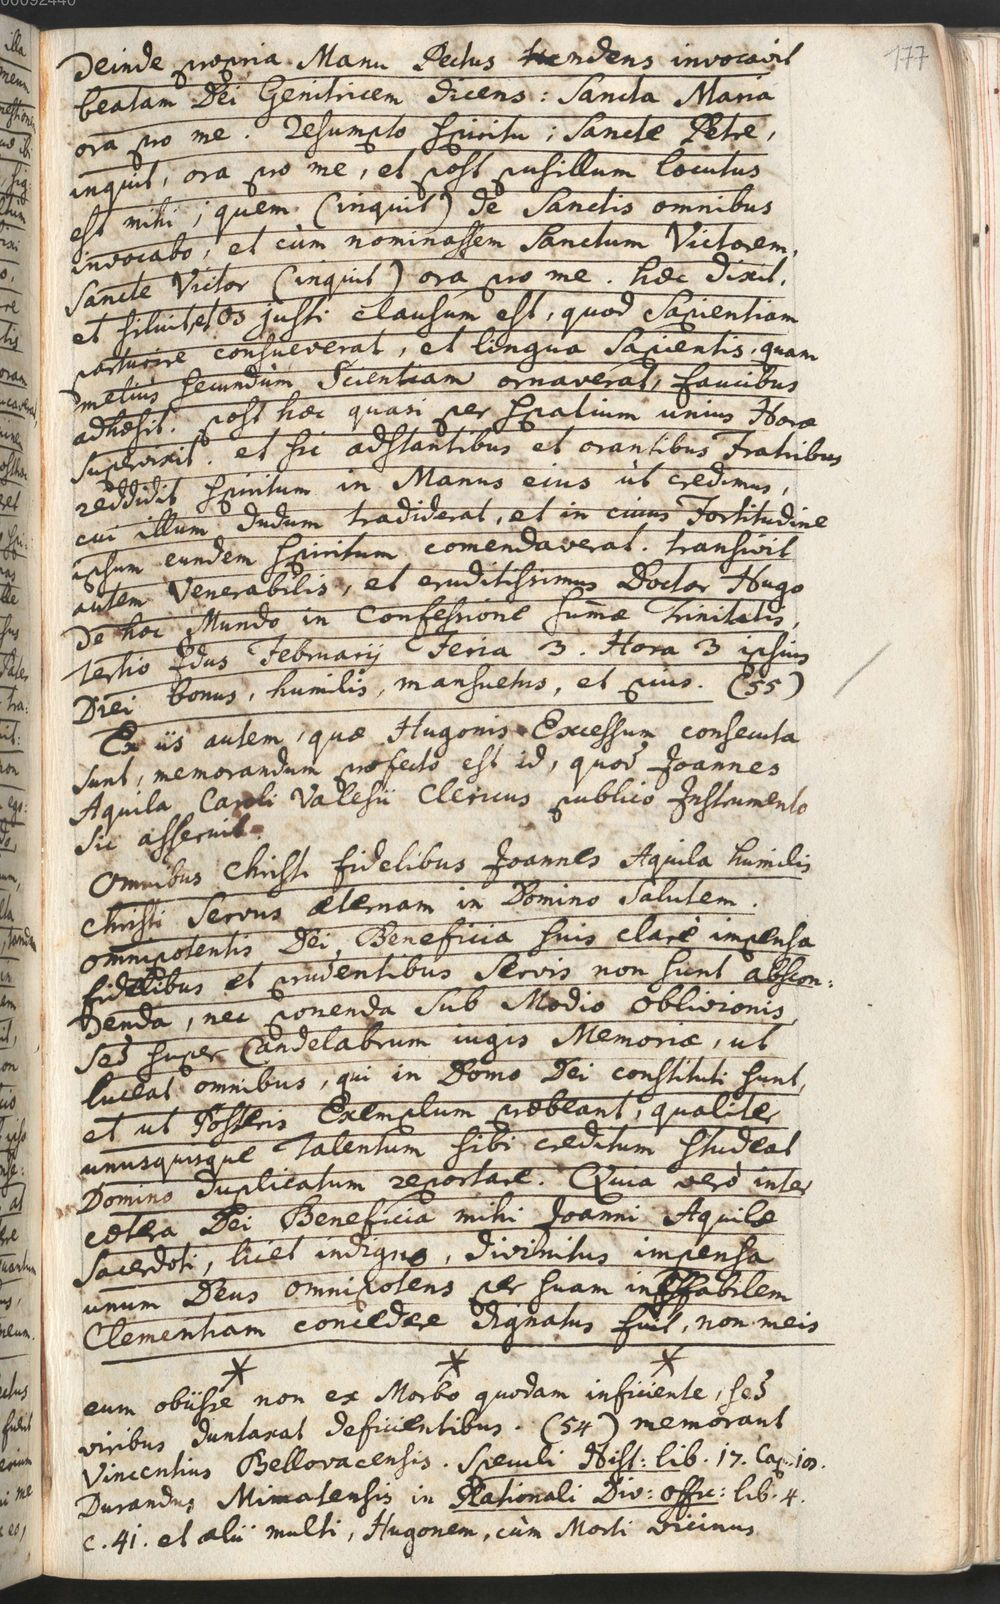 00092440
177
Deinde propria Manu Pectus tundens invocavit
beatam Dei Genitricem dicens: Sancta Maria
ora pro me. Resumpto spiritu; Sancte Petre,
inquit, ora pro me, et post pusillum locutus
est mihi; quem (inquit) de Sanctis omnibus
invocabo, et cùm nominassem Sanctum Victorem,
Sancte Victor (inquit) ora pro me. hæc dixit,
et siluit, et os justi clausum est, quod Sapientiam
parturire consueverat, et lingua Sapientis, quam
melius secundùm Scientiam ornaverat, faucibus
adhæsit. post hæc quasi per spatium unius Horæ
supervixit. et sic adstantibus et orantibus Fratribus
reddidit spiritum in Manus eius ùt credimus,
cui illum dudum tradiderat, et in cuius Fortitudine
ipsum eundem spiritum comendaverat. transivit
autem Venerabilis, et eruditissimus Doctor Hugo
de hoc Mundo in Confessione sum̄æ Trinitatis,
tertio Idus Februarij Feria 3. Hora 3 ipsius
Diei bonus, humilis, mansuetus, et pius. (55)
Ex iis autem, quæ Hugonis Excessum consecuta
sunt, memorandum profecto est id, quod Joannes
Aquila Caroli Valesii Clericus publico Instrumento
sic asseruit.
Omnibus Christi fidelibus Joannes Aquila humilis
Christi Servus æternam in Domino Salutem.
omnipotentis Dei Beneficia suis clarè impensa
fidelibus et prudentibus Servis non sunt abscon:
denda, nec ponenda sub Modio oblivionis,
sed super Candelabrum iugis Memoriæ, ut
luceat omnibus, qui in Domo Dei constituti sunt,
et ut Posteris Exemplum præbeant, qualiter
unusquisque Talentum sibi creditum studeat
Domino duplicatum reportare. Quia verò inter
cætera Dei Beneficia mihi Joanni Aquilæ
Sacerdoti, licet indigno, divinitus impensa
unum Deus omnipotens per suam ineffabilem
Clementiam concedere dignatus fuit, non meis
* * *
eum obiisse non ex Morbo quodam inficiente, sed
viribus duntaxat deficientibus. (54) memorant
Vincentius Bellovacensis. Speculi Hist: lib. 17. Cap.
Durandus Mimatensis in Rationali Div: offic: lib. 4.
c. 41. et alii multi, Hugonem, cùm Morti vicinus